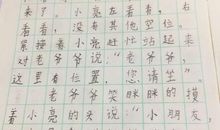 来了，小亮左看看，右
看看，没有其他空位，
紧接着小亮赶忙站起来
对老爷爷说：“老爷爷，
这里有位置，您请坐”
老爷爷笑眯眯的摸
着小亮的头说：“小朋友，